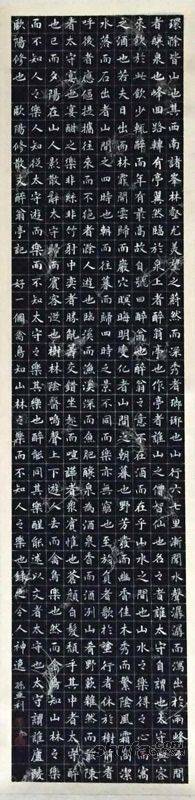 環滁皆山也其西南諸峯林壑尤美望之蔚然而深秀者瑯琊也山行六七里漸聞水聲潺潺而瀉出於兩峰之間
者釀泉也峰回路轉有亭翼然臨於泉上者醉翁亭也作亭者誰山之僧智仙也名之者誰太守自謂也太守與客
來飲於此飲少輒醉而年又最高故自號曰醉翁也醉翁之意不在酒在乎山水之間也山水之樂得之心而寓
之酒也若夫日出而林霏開雲歸而巖穴暝晦明變化者山間之朝暮也野芳發而幽香佳木秀而繁陰風霜高潔
水落而石出者山間之四時也朝而往暮而歸四時之景不同而樂亦無窮也至於負者歌於塗行者休於樹前者
呼後者應傴僂提攜往來而不絕者滁人遊也臨溪而漁溪深而魚肥釀泉為酒泉香而酒洌山肴野蔌雜然而前陳
者太守宴也宴酣之樂非絲非竹射者中奕者勝觥籌交錯坐起而諠譁者眾賓懽也蒼顏白髮頹乎其中者太守醉
也已而夕陽在山人影散亂太守歸而賓客從也樹林陰翳鳴聲上下遊人去而禽鳥樂也然而禽鳥知山林之樂
而不知人之樂人知從太守遊而樂而不知太守之樂其樂也醉能同其樂醒能述以文者太守也太守謂誰廬陵
歐陽修也 歐陽修散文醉翁亭記 好一個禽鳥知山林之樂而不知人之樂也錄之令人神逸